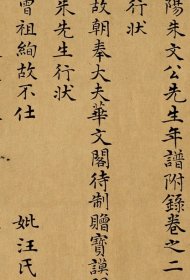 陽朱文公先生年譜附錄卷之二
行狀
故朝奉大夫華文閣待制贈寶謨
朱先生行狀
曾祖絢故不仕 妣汪氏